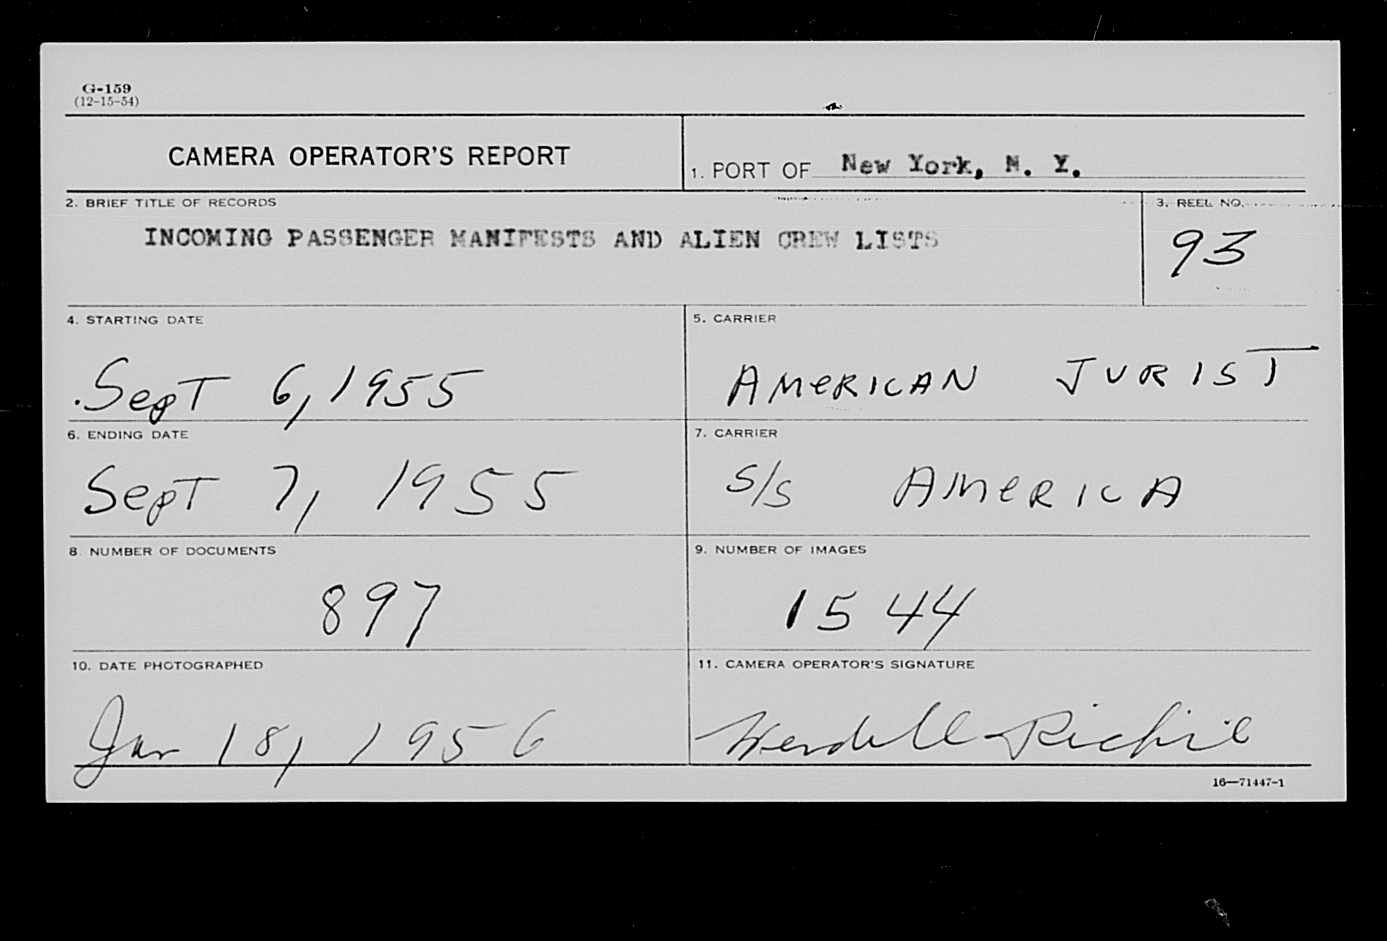 G-159
(12-15-54)
CAMERA OPERATOR'S REPORT
1. PORT OF New York, N. Y.
2. BRIEF TITLE OF RECORDS
INCOMING PASSENGER MANIFESTS AND ALIEN CREW LISTS
3. REEL NO.
93
4. STARTING DATE
Sept 6, 1955
5. CARRIER
AMERICAN JURIST
6. ENDING DATE
Sept 7, 1955
7. CARRIER
S/S AMERICA
8. NUMBER OF DOCUMENTS
897
9. NUMBER OF IMAGES
1544
10. DATE PHOTOGRAPHED
Jan 18, 1956
11. CAMERA OPERATOR'S SIGNATURE
Wendell Richie
16—71447-1